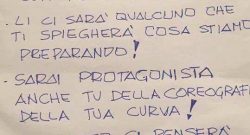 - LI CI SARA' QUALCUNO CHE
TI SPIEGHERÀ COSA STIAMO
PREPARANDO!
- SARAI PROTAGONISTA
ANCHE TU DELLA COREOGRAF
DELLA TUA CURVA!
CI PENSERÀ